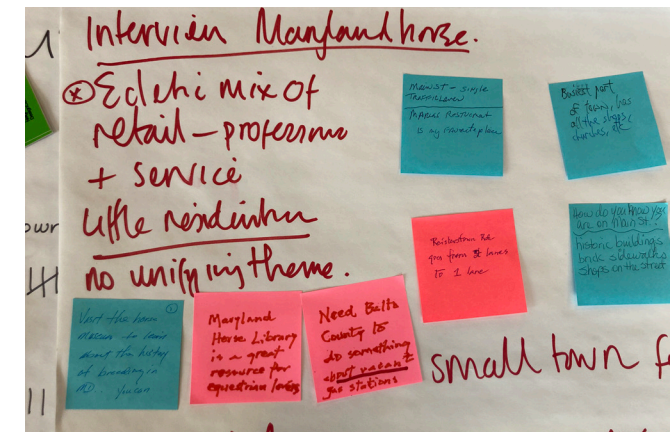 Interview Maryland horse.
Ecletic mix of
retail – professiona
+ service
little residention
no unifying theme.
MAIN ST – SINGLE
TRAFFIC
RESTAURANT
IS my favorite place
Busiest part
of town, has
all the shops,
churches, etc
Reisterstown Rd
goes from lanes
TO 1 lane
How do you know you
are on Main St.?
historic buildings
brick sidewalks
shops on the street
Visit the horse
museum to learn
about the history
of breeding in
MD.. You can
Maryland
Horse Library
is a great
resource for
equestrian lovers
Need Balto
County to
do something
about vacant
gas stations
small town f